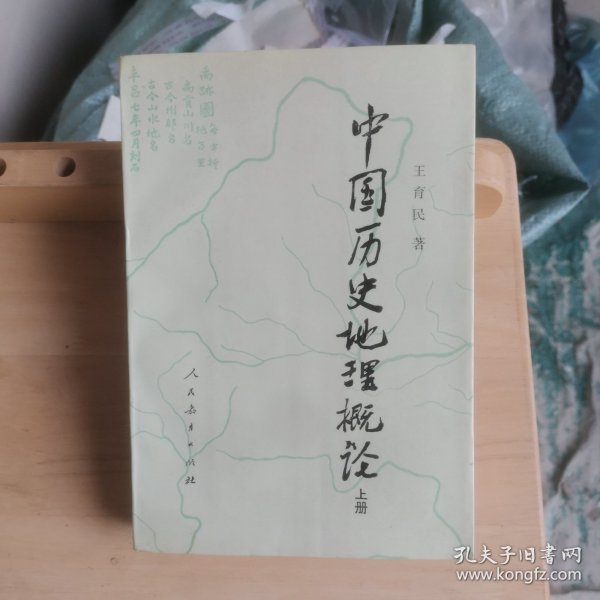 中国历史地理概论
上册
王育民 著
禹跡圖 每方折地百里
禹貢山川名
古今州郡名
古今山水地名
阜昌七年四月刻石
人民教育出版社
孔夫子旧书网
www.kongfz.com